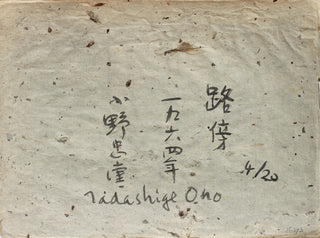 路傍
4/20
一九六四年
小野忠重
Tadashige Ono